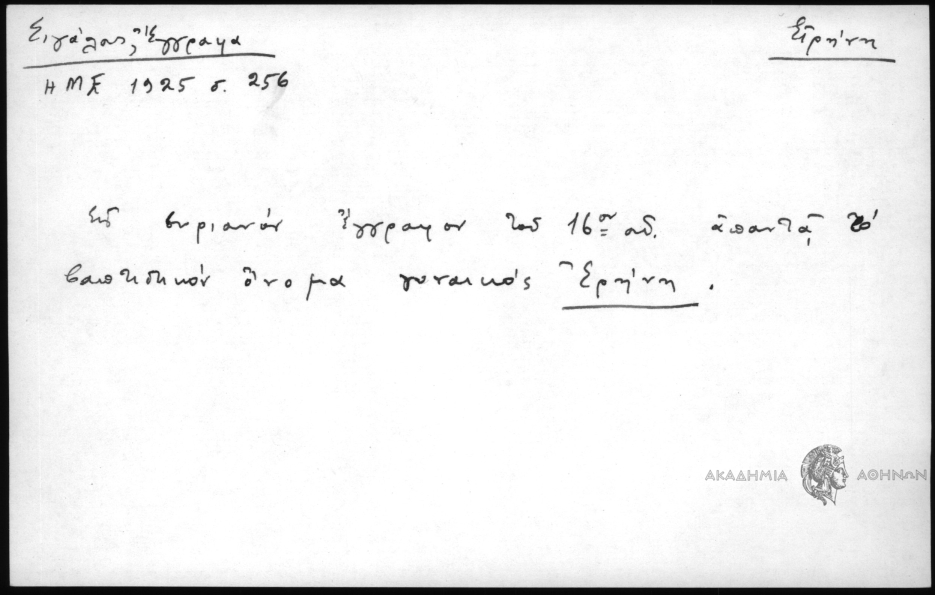 Σιγάλας, Ἔγγραφα
Εἰρήνη
ΗΜΕ 1925 σ. 256
Εἰς συριανὸν ἔγγραφον τοῦ 16ου αἰ. ἀπαντᾷ τὸ
βαπτιστικὸν ὄνομα γυναικός Ἐρήνη.
ΑΚΑΔΗΜΙΑ ΑΘΗΝΩΝ